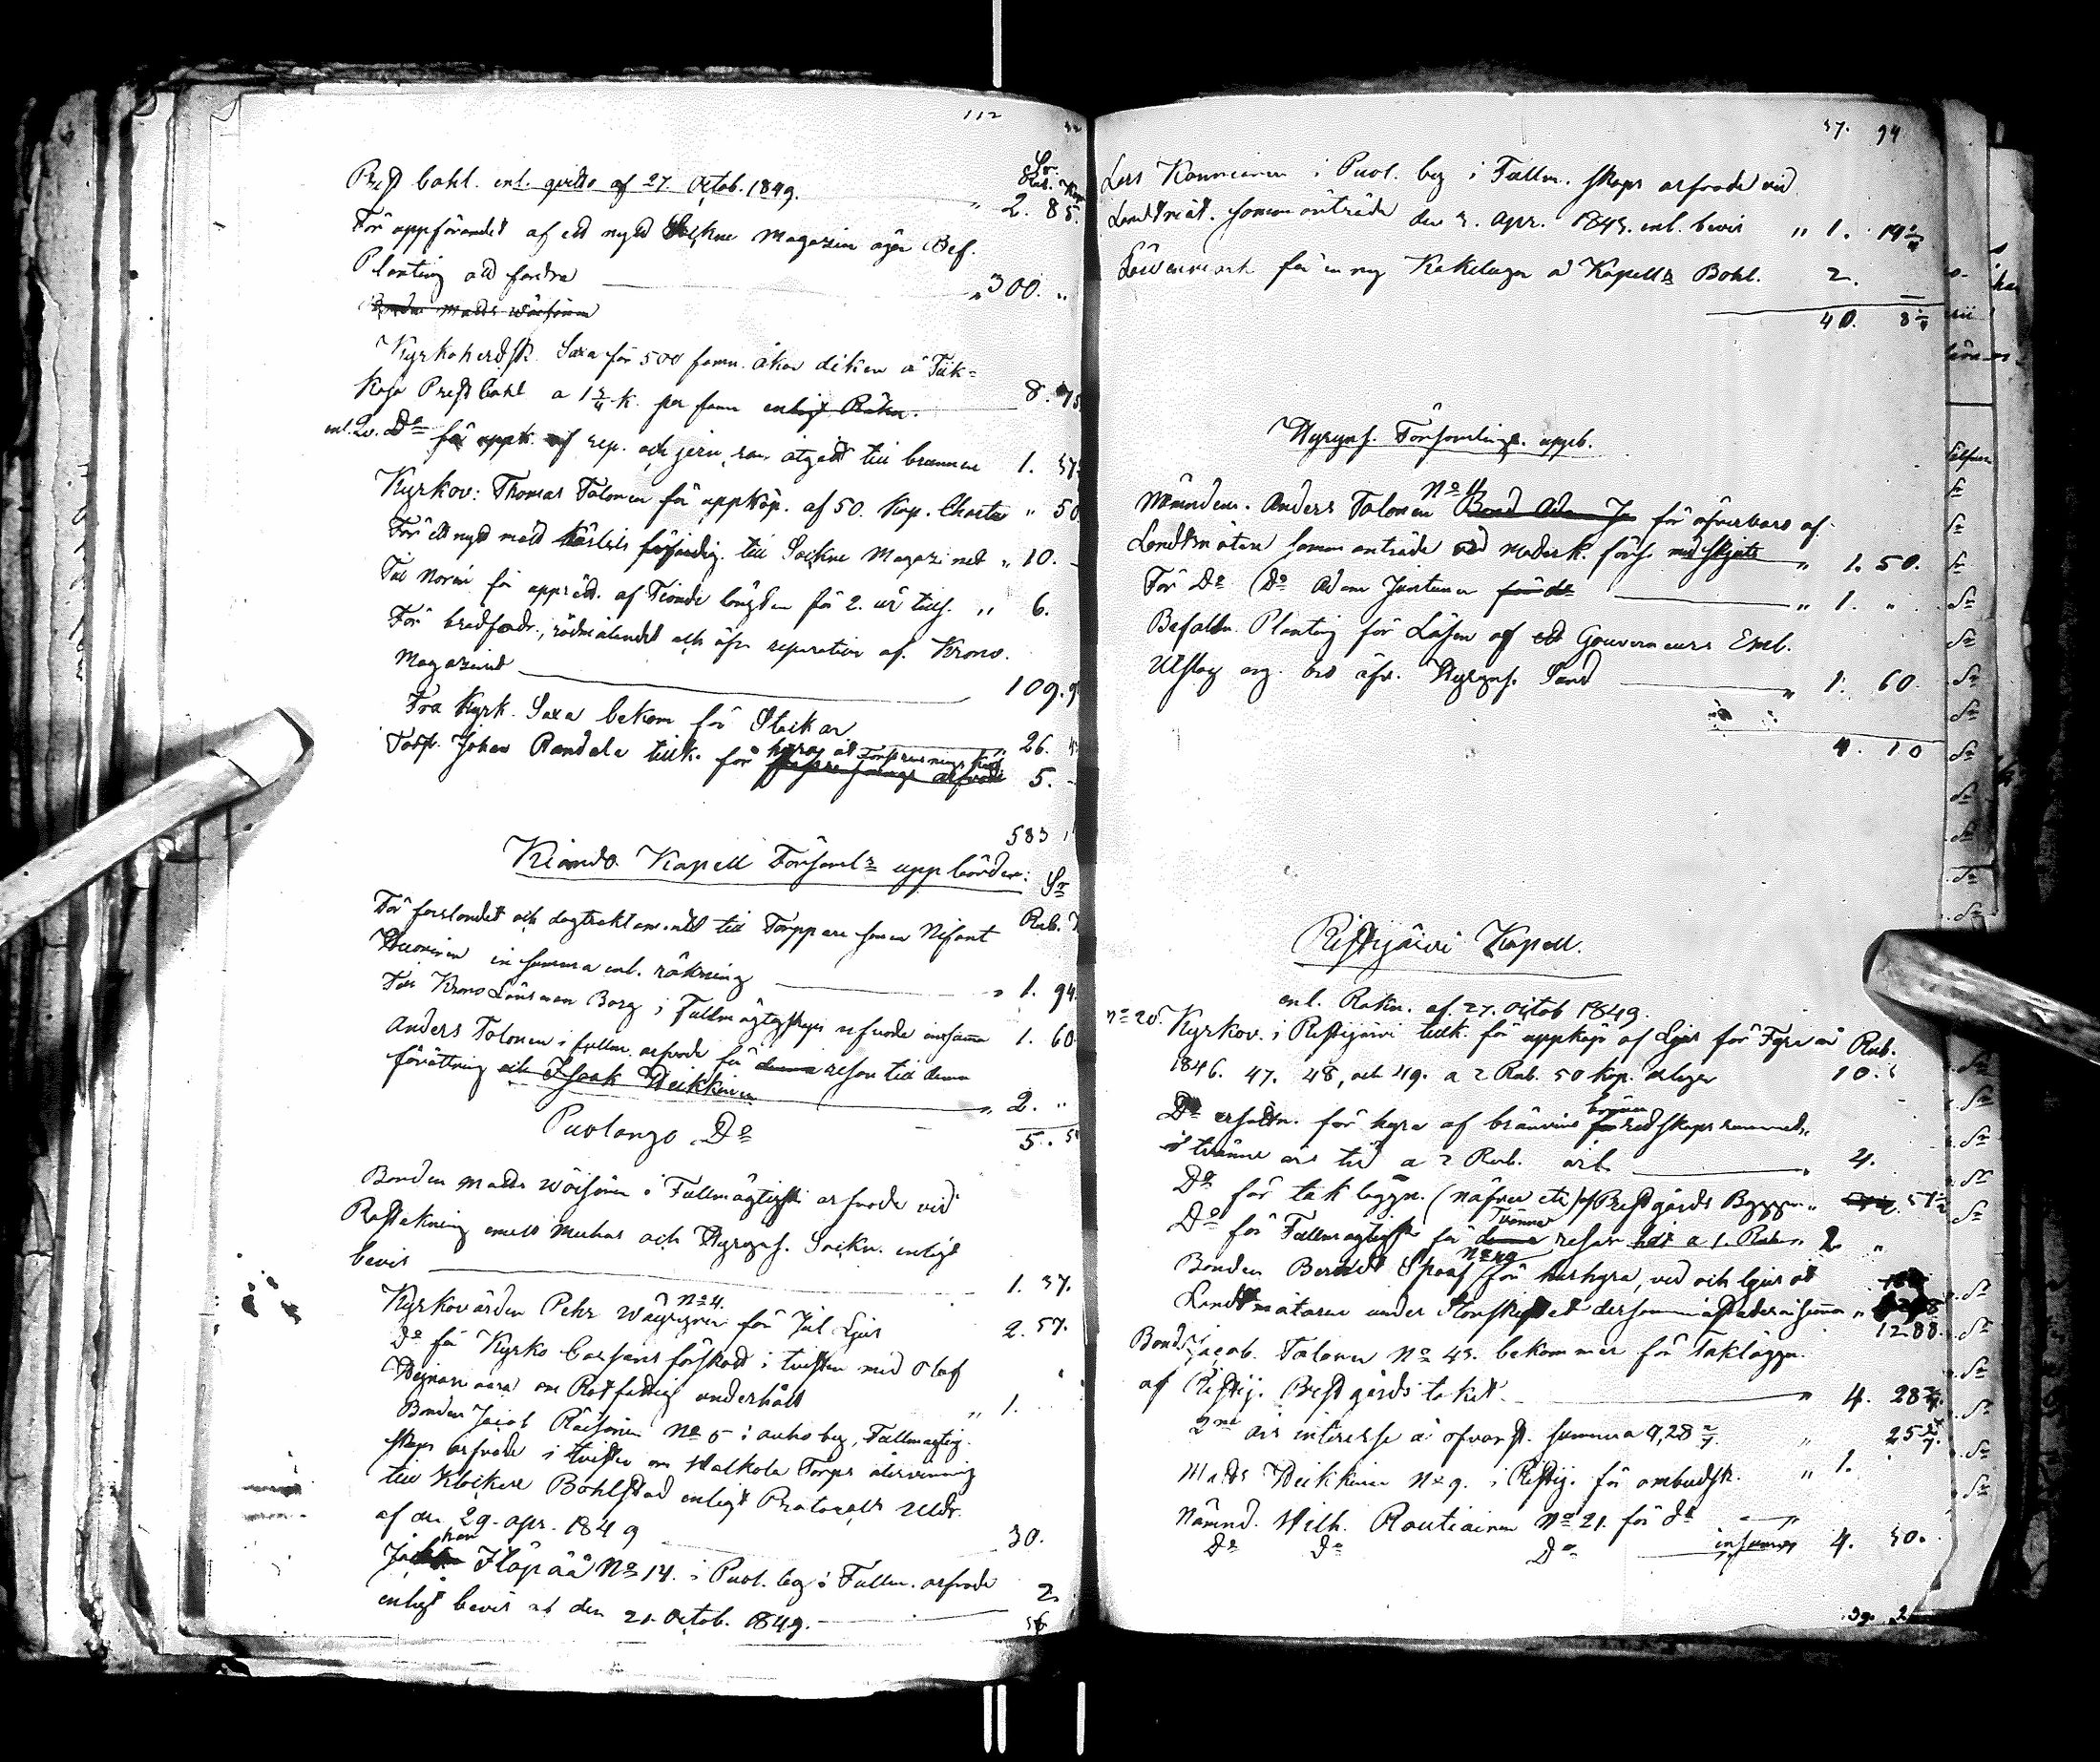 112
Sr
Rub. Kop
Prest bohl. enl. qvitto af 27. Octob. 1849. " 2. 85.
För uppförandet af ett nytt Sockne Magazin äger Bef.
Planting att fordra " 300. "
Bonden Matts Wäisänen
Kyrkoherdsk. Saxa för 500 famn. åker diken å Tuk=
kaja Prestbohl a 1 3/4 k. per famn enligt Räkn. 8. 75
enl. Qv. Do för uppk. af rep. och jern, som åtgått till brunnen 1. 37
Kyrkov: Thomas Tolonen för uppköp. af 50. Kop. Charta " 50
För ett nytt mått kärlets förfärdig. till Sockne Magazinet " 10. -
Till Norén för upprätt. af Tionde längden för 2. år tills. " 6.
För brädfodr., rödmålandet och öfr reparation af Krono.
Magazinet 109. 9
Fru Kyrk. Saxa bekom för Stickor 26.
Torp. Johan Randela tillk. för hyra åt Förs
5. -
583
Kianda Kapell Församls uppbörder: Sr
Rub.
För forslandet och dagtraktamentet till Torpparesonen Nifant
Huovinen in summa enl. räkning " 1. 94.
För Krono Länsman Borg i Fullmägtigskaps arfvode insumma 1. 60.
Anders Tolonen i fullm. arfvode för denna resor till denna
förrättning och Isaak Heikkinen " 2. "
5. 5
Puolango Do
Bonden Matts Wäisänen i Fullmägtigsk arfvode vid
Rågång emell Muhos och Hyryns. Sockn. enligt
bevis 1. 37.
Kyrkovärden Pehr Wäyrynen No 4. för Jul Ljus 2. 57.
Do för Kyrko Cassans förskott i tvisten med Olof
Heinosvaara om Rotfattigs underhåll " 1.
Bonden Jacob Räisänen No 5 i Auho by, Fullmägtig
skaps arfvode i tvisten om Halkola Torps återvinning
till Klockare Bohlstad enligt Protocolls Utdr.
af den 29. Apr. 1849 30.
Johan Iläpää No 14. i Puol. by i Fullm. arfvode
enligt bevis af den 21. Octob. 1849. 2.
36
37. 94
Lars Kanniainen i Puol. by i Fullm. skaps arfvode vid
Landtmät. sammanträde den 3. Apr. 1843. enl. bevis " 1. 14
för en ny Kakelugn å Kapells Bohl. 2.
40. 8
Hyryns. Församlings. uppb.
Nämndem. Anders Tolonen No 4 för öfvervaro af
Landtmäten sammanträde vid moderk. förs. med skjuts " 1. 50.
För Do Do Adam Juntunen för do " 1. "
Befalln. Planting för Lösen af ett Gouverneurs Embl.
Utslag ang. öfv. Hyryns. Sand " 1. 60.
4. 10
Ristijärvi Kapell.
enl. Räkn. af. 27. Octob 1849.
no 20. Kyrkov. i Ristijärvi tillk. för uppköp af Ljus för Fyra år Rub.
1846. 47. 48, och 49. a 2 Rub. 50 kop. årligen 10. "
Do ersättn. för hyra af brännvins bränn redskaps rummet,
i tvänne års tid a 2 Rub. årl. " 4.
Do för tak läggn. (näfver etc) af Prestgårds Byggn. " 57
Do för Fullmägtigsk för Tvänne resor hvt a 1. Rub. " 2 "
Bonden Berndt Spoof No 49 för hushyra, ved och ljus åt
Landtmätaren under Storskiftet dersammastädes isumma " 12 88.
Bond. Jacob. Tolonen No 43. bekommer för Takläggn.
af Ristij. Prestgårds taket. " 4. 28
2ne års interesse å ofvanst. summa 4,28 " 25
Matts Heikkinen No 9. i Ristij. för ombudsk. " 1. "
Nämnd. Wilh. Rautiainen No 21. för do
Do Do Do insumma 4. 50.
39. 2